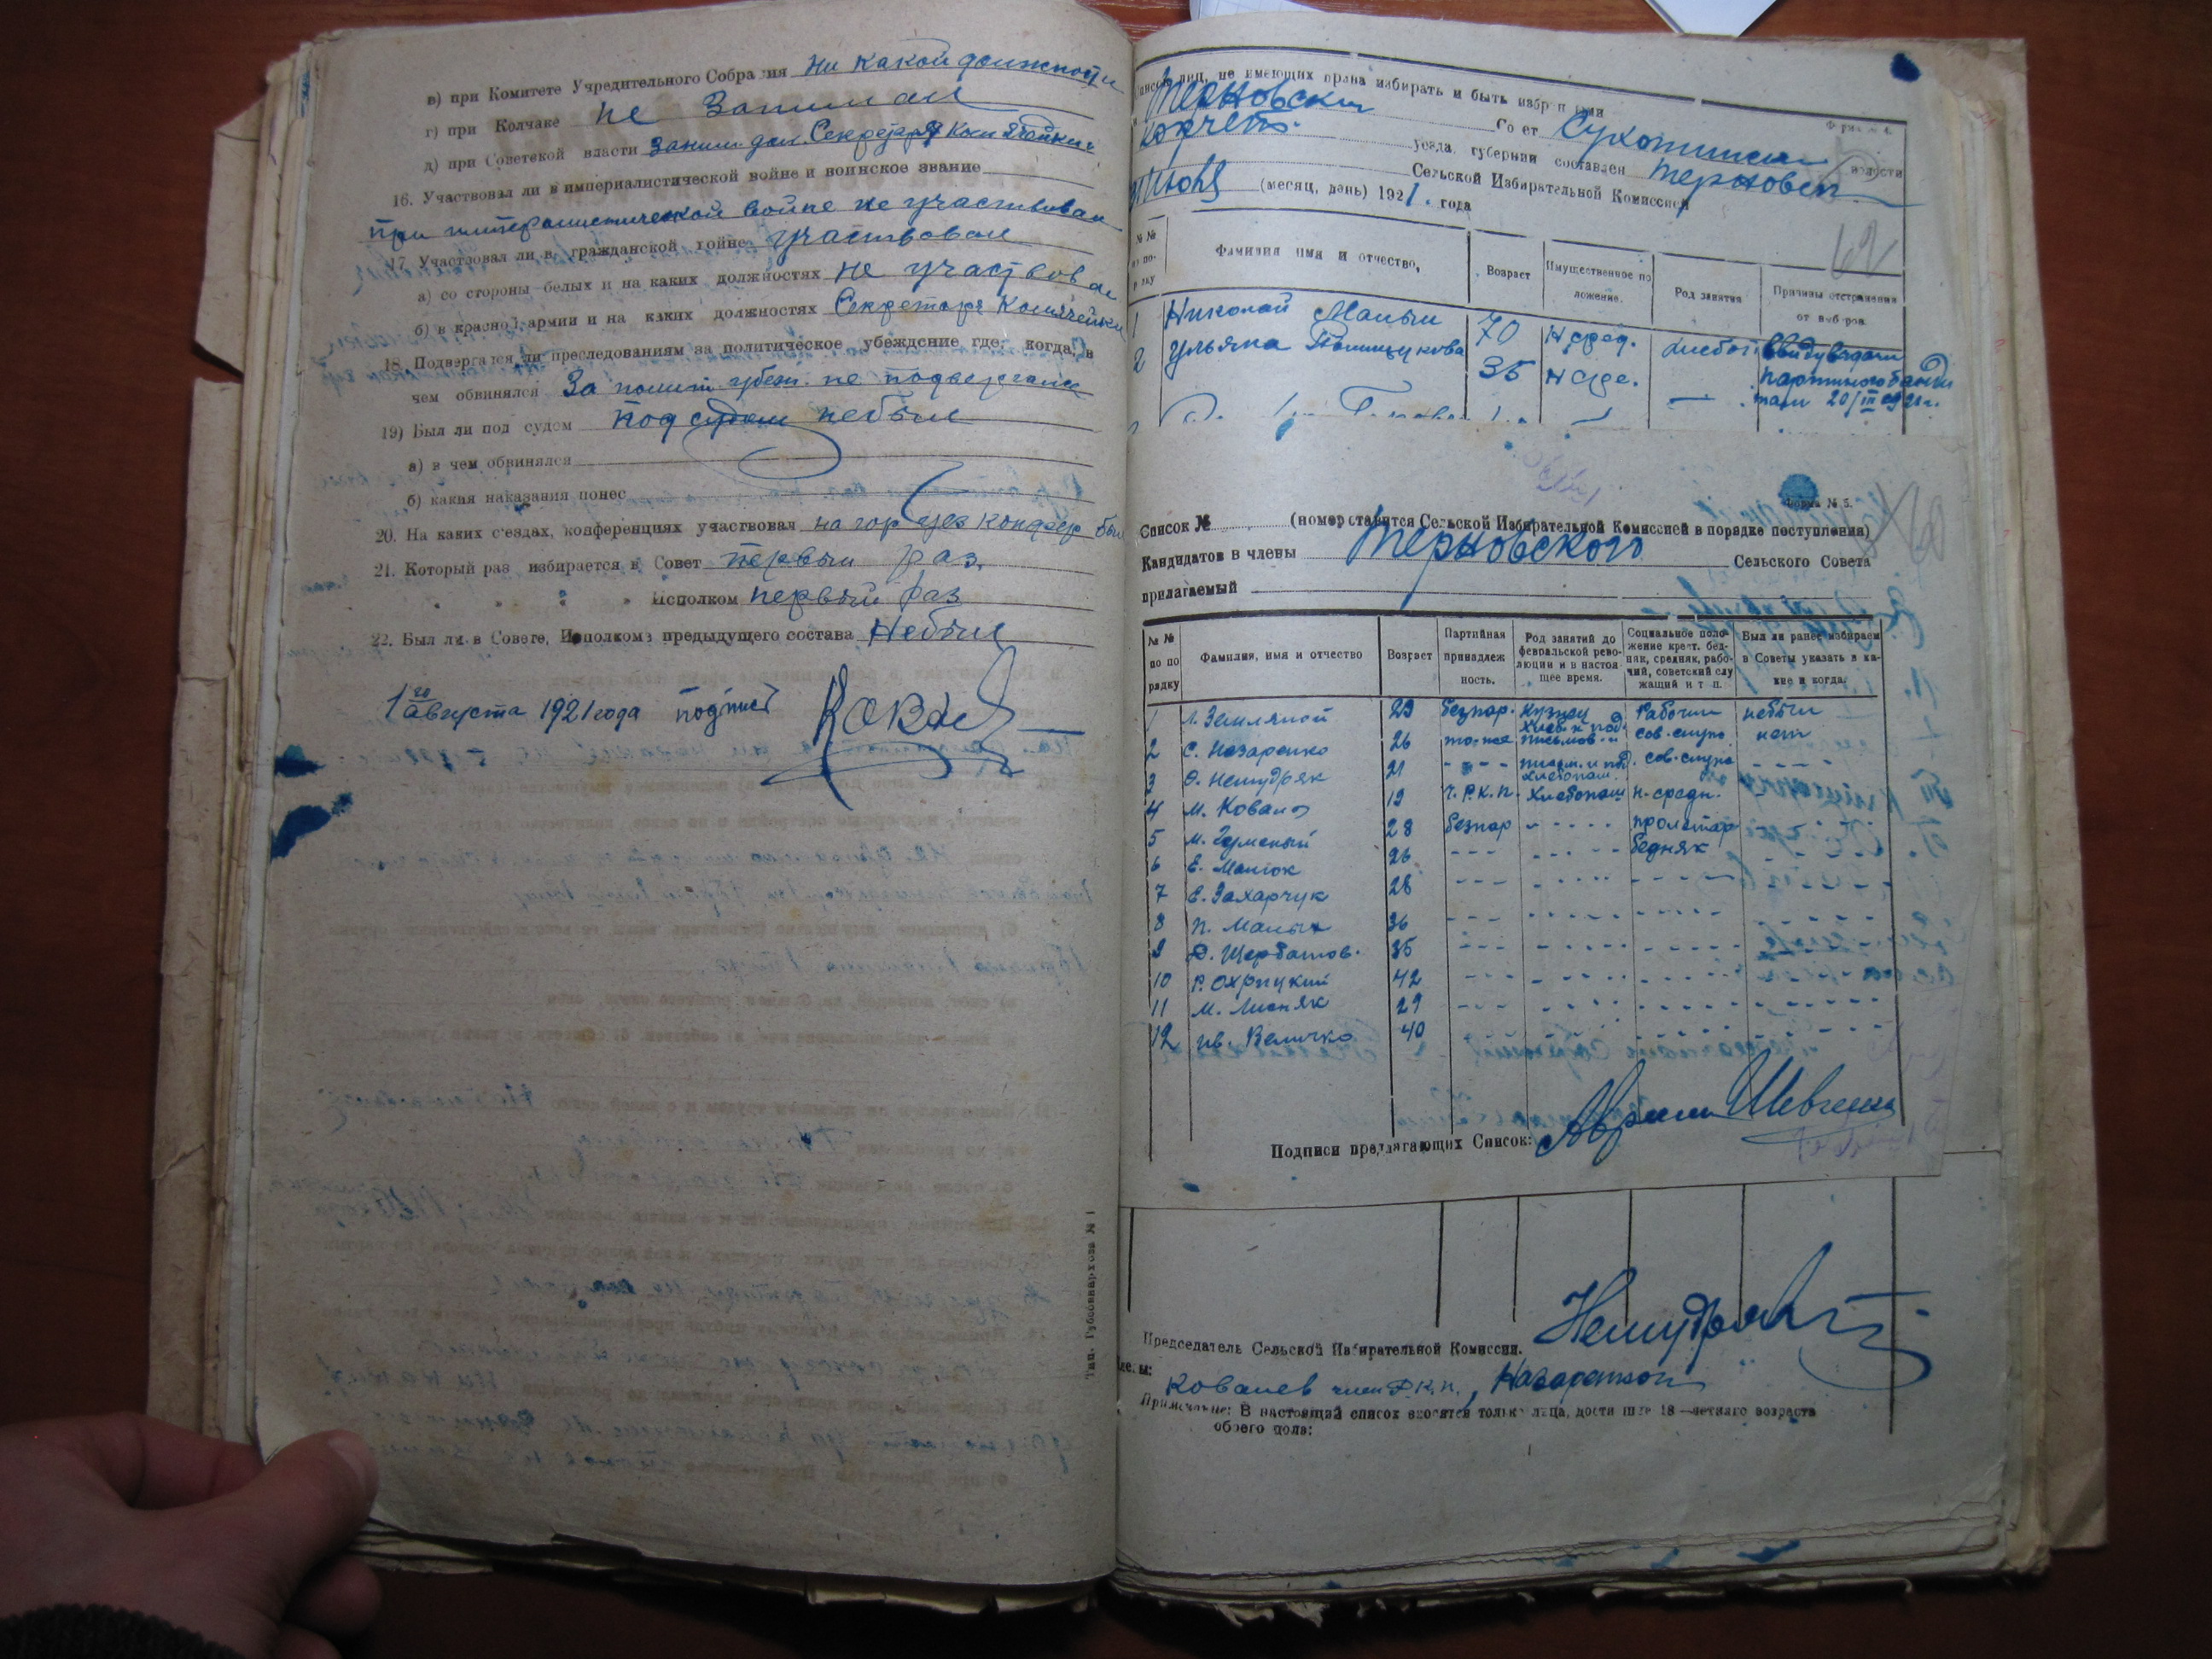 в) при Комитете Учредительного Собрания ни какой должности
г) при Колчаке не занимал
д) при Советской власти заним. дол. Секретаря Ком ячейки
16. Участвовал ли в империалистической войне и воинское звание
при империалистической войне не участвовал
17. Участвовал ли в гражданской войне участвовал
а) со стороны белых и на каких должностях не участвовал
б) в красной армии и на каких должностях Секретаря Комячейки
18. Подвергался ли преследованиям за политическое убеждение где, когда, в
чем обвинялся За полит убежд. не подвергался
19) Был ли под судом под судом небыл
а) в чем обвинялся
б) какия наказания понес
20. На каких с'ездах, конференциях участвовал на гор уез конфер был
21. Который раз избирается в Совет первый раз.
" " " " Исполком первый раз
22. Был ли в Совете, Исполкоме предыдущего состава Небыл
1го августа 1921 года подпись
Тип. Губсовнархоза № 1
лиц, не имеющих права избирать и быть избранными
Форма № 4.
Терновский Совет Сухотинской волости
Корчет. уезда, губернии составлен Терновск
Сельской Избирательной Комиссией
Июля (месяц, день) 1921. года
62
№ № по по-рядку Фамилия имя и отчество, Возраст Имущественное положение. Род занятия Причины отстранения от выборов
1 Николай Малыи 70 н сред. хлебоп ввиду выдачи
2 Ульяна 35 н сре. — партиного банди
там 20/III 1921 г.
Форма № 5.
60
Список № (номер ставится Сельской Избирательной Комиссией в порядке поступления)
Кандидатов в члены Терновского Сельского Совета
прилагаемый
№ № по по рядку Фамилия, имя и отчество Возраст Партийная принадлежность. Род занятий до февральской революции и в настоящее время. Социальное положение крест. бедняк, средняк, рабочий, советский служащий и т п. Был ли ранее избираем в Советы указать в какие и когда.
1 Л. Земляной 29 безпар. кузнец Рабочии небыл
2 С. Назаренко 26 то-же хлеб и под. письмов. сов. служ нет
3 Ф. Немудряк 21 - - - - письм. и под. хлебопаш. сов. служ - - - -
4 М. Ковалев 19 ч. Р.К.П. Хлебопаш н. средн.
5 М. Гуменый 28 безпар - - - - - пролетар
6 Е. Манюк 26 - - - - - - - - бедняк - - - -
7 Е. Захарчук 28 - - - - - - - - - - - - - - - -
8 П. Малых 36 - - - - - - - - - - - - - - - -
9 Д. Щербатов. 35 - - - - - - - - - - - - - - - -
10 Г. Охрицкий 42 - - - - - - - - - - - - - - - -
11 М. Лисняк 29 - - - - - - - - - - - - - - - -
12 ив. Величко 40 - - - - - - - - - - - - -
Подписи предлагающих Список:
Председатель Сельской Избирательной Комиссии.
Члены: Ковалев член Р.К.П., Назаренко
Примечание: В настоящий список вносятся только лица, достигшие 18—летняго возраста
обоего пола: